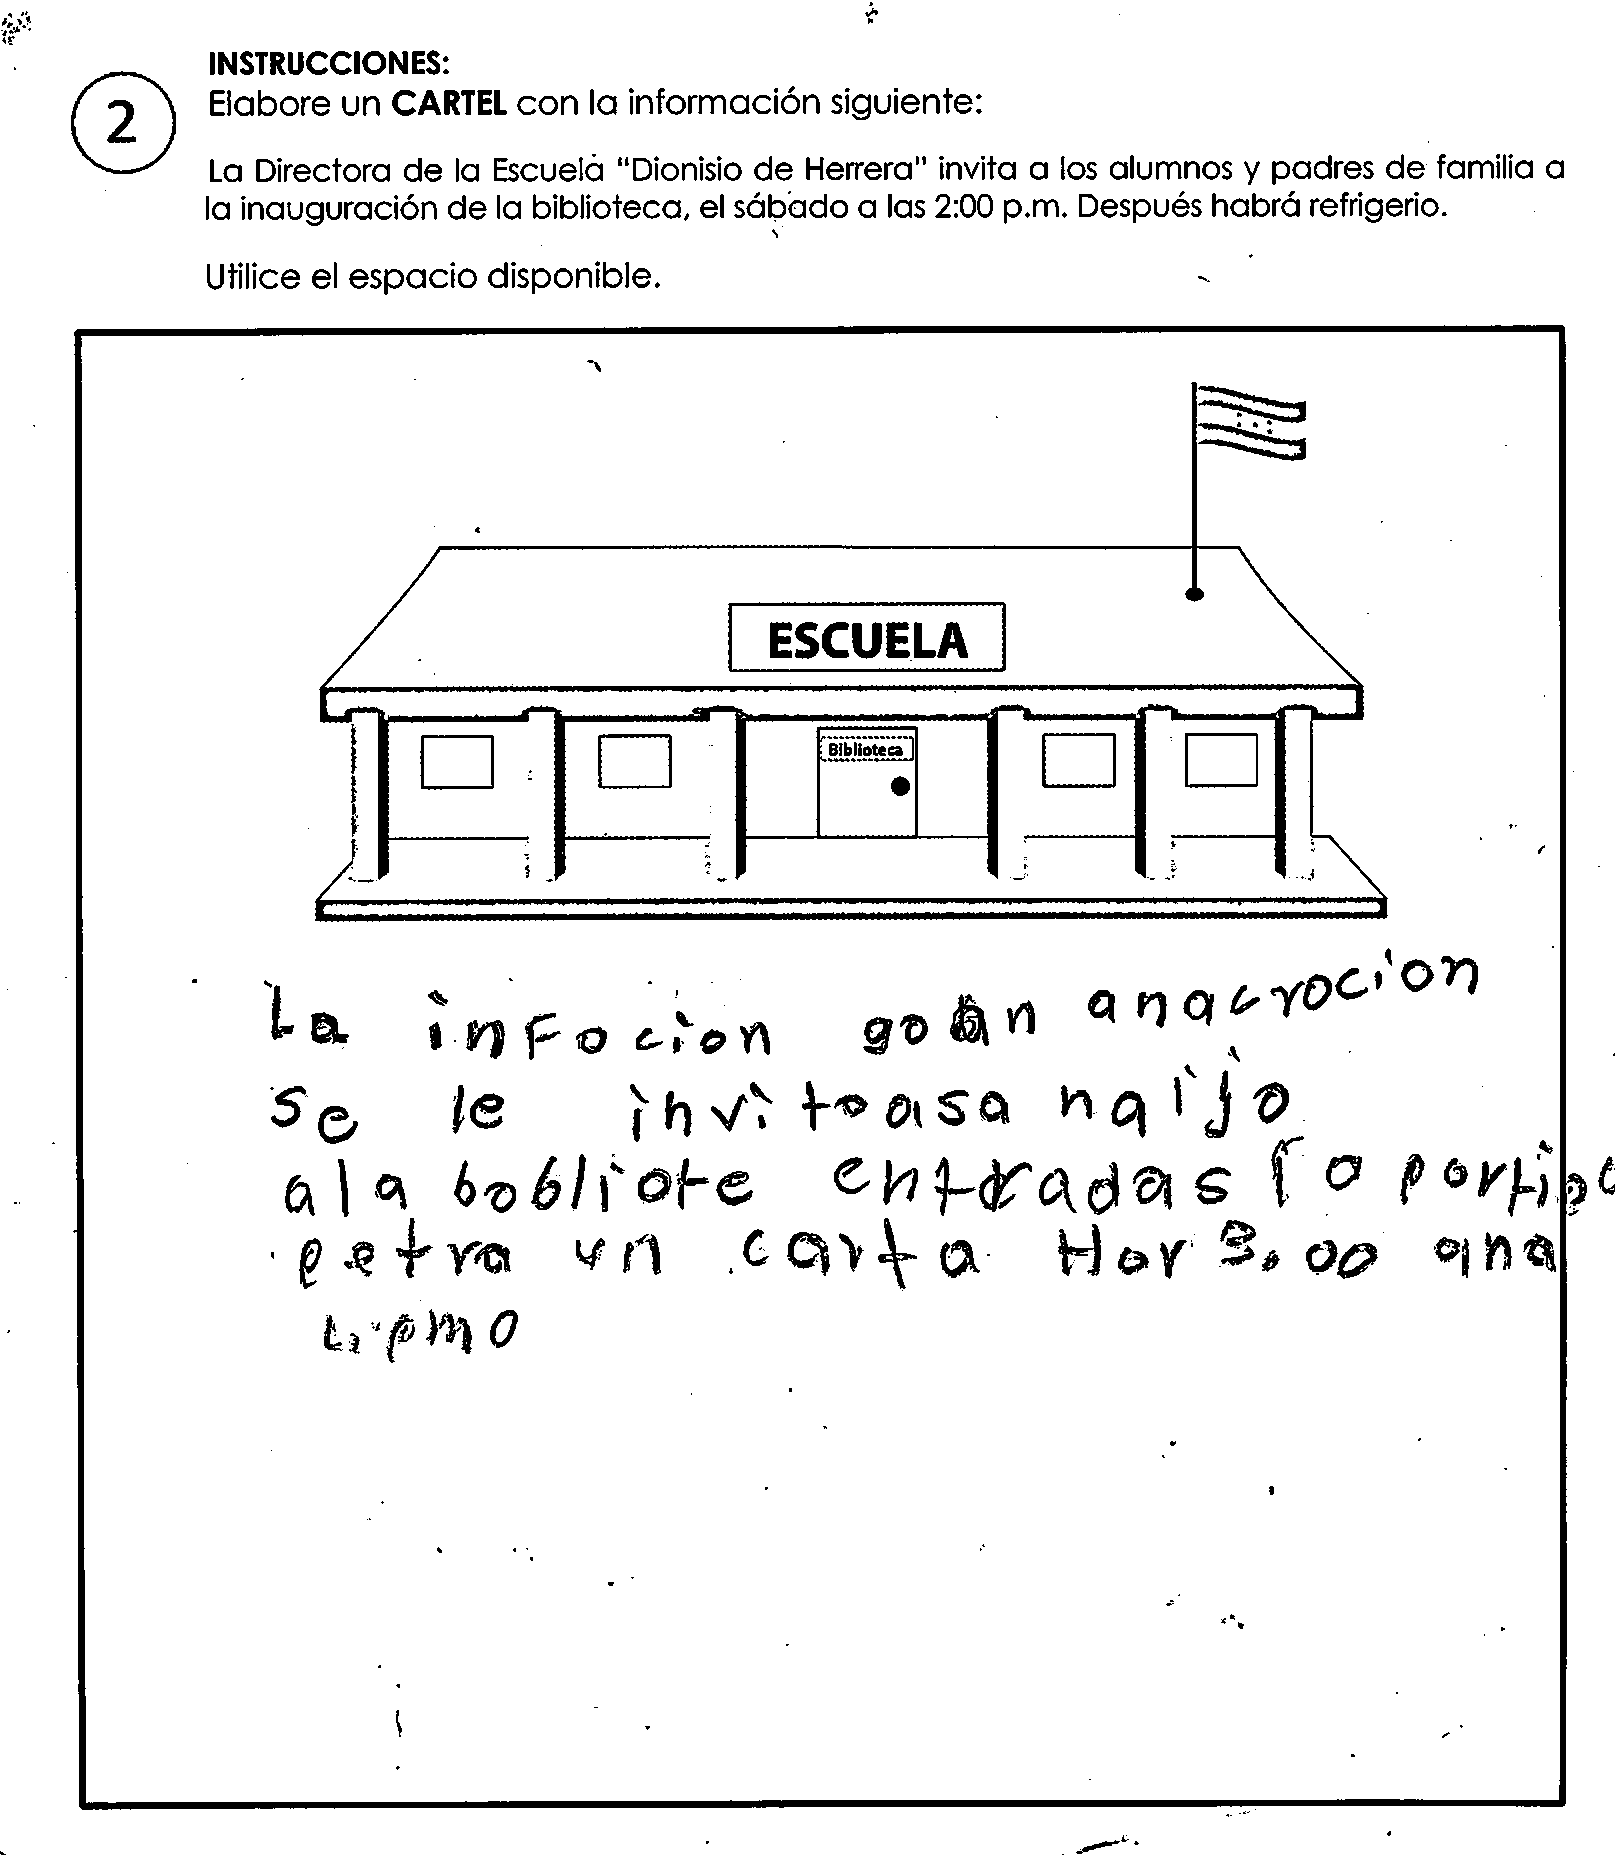 INSTRUCCIONES:
2
Elabore un CARTEL con la información siguiente:
La Directora de la Escuela "Dionisio de Herrera" invita a los alumnos y padres de familia a
la inauguración de la biblioteca, el sábado a las 2:00 p.m. Después habrá refrigerio.
Utilice el espacio disponible.
ESCUELA
Biblioteca
La infocion anacrocion
se le invitoasa naijo
ala bobliote entradas
petra un carta Hor 3.00 ana